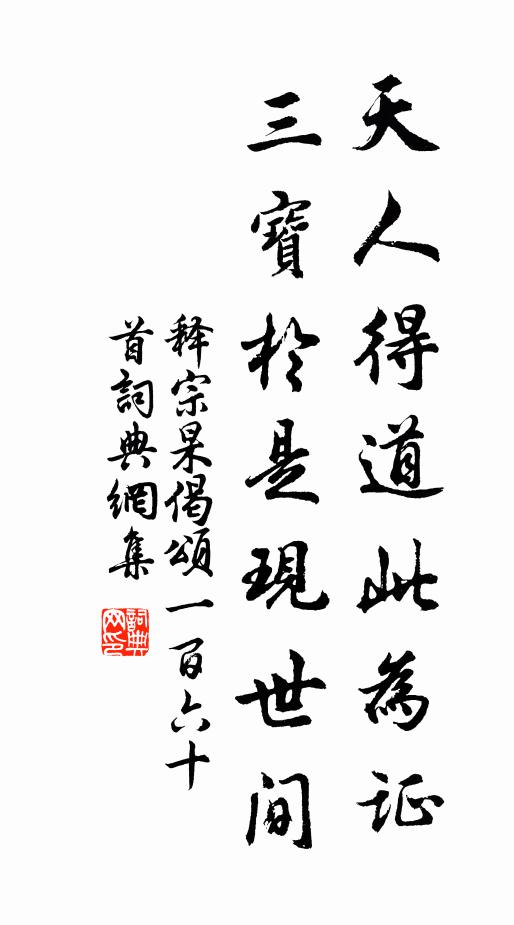 天人得道此為证
三寶於是現世间
释宗杲偈頌一百六十
首詞典網集
詞典
网印